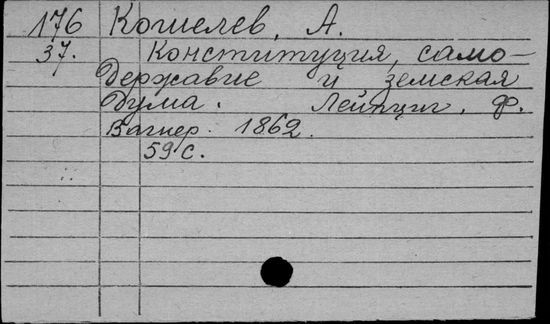 176 Кошелев, А.
37. Конституция, само-
державие и земская
дума. Лейпциг, Ф.
Вагнер. 1862.
59 с.